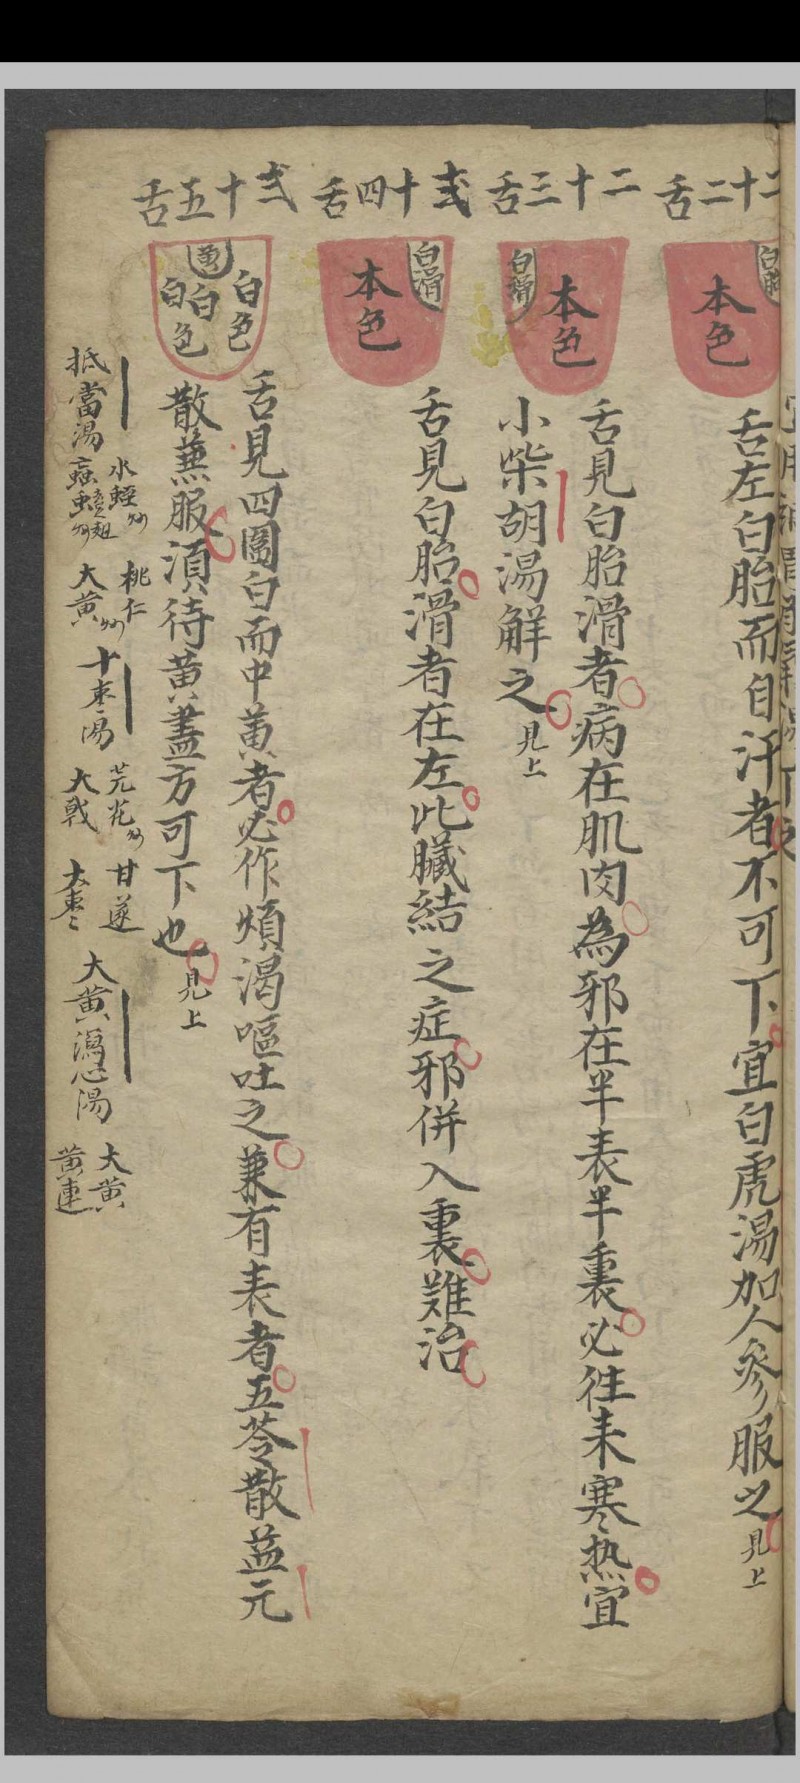 二十二舌
白胎
本色
舌左白胎而自汗者不可下宜白虎湯加人參服之見上
二十三舌
白滑
本色
舌見白胎滑者病在肌肉為邪在半表半裏必徃來寒热宜
小柴胡湯解之見上
弍十四舌
白滑
本色
舌見白胎滑者在左此臟結之症邪併入裏難治
弍十五舌
黃
白色
白
白色
舌見四圍白而中黃者必作煩渴嘔吐之兼有表者五苓散益元
散兼服湏待黃盡方可下也見上
抵當湯
水蛭
桃仁
大黃
十枣湯
芫花
大戟
甘遂
大棗
大黃瀉心湯
大黃
黃連